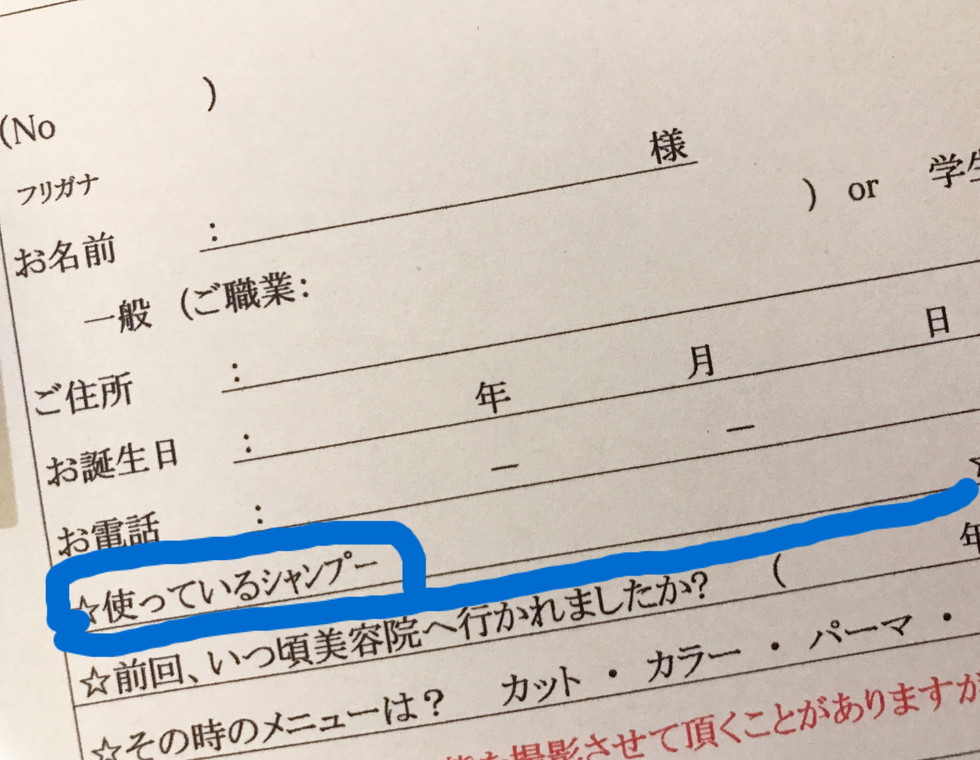 (No )
フリガナ
お名前 : 様
一般 (ご職業: ) or 学生
ご住所 :
お誕生日 : 年 月 日
お電話 : ー ー
☆使っているシャンプー ☆
☆前回、いつ頃美容院へ行かれましたか? ( 年
☆その時のメニューは? カット ・ カラー ・ パーマ ・
撮影させて頂くことがありますが